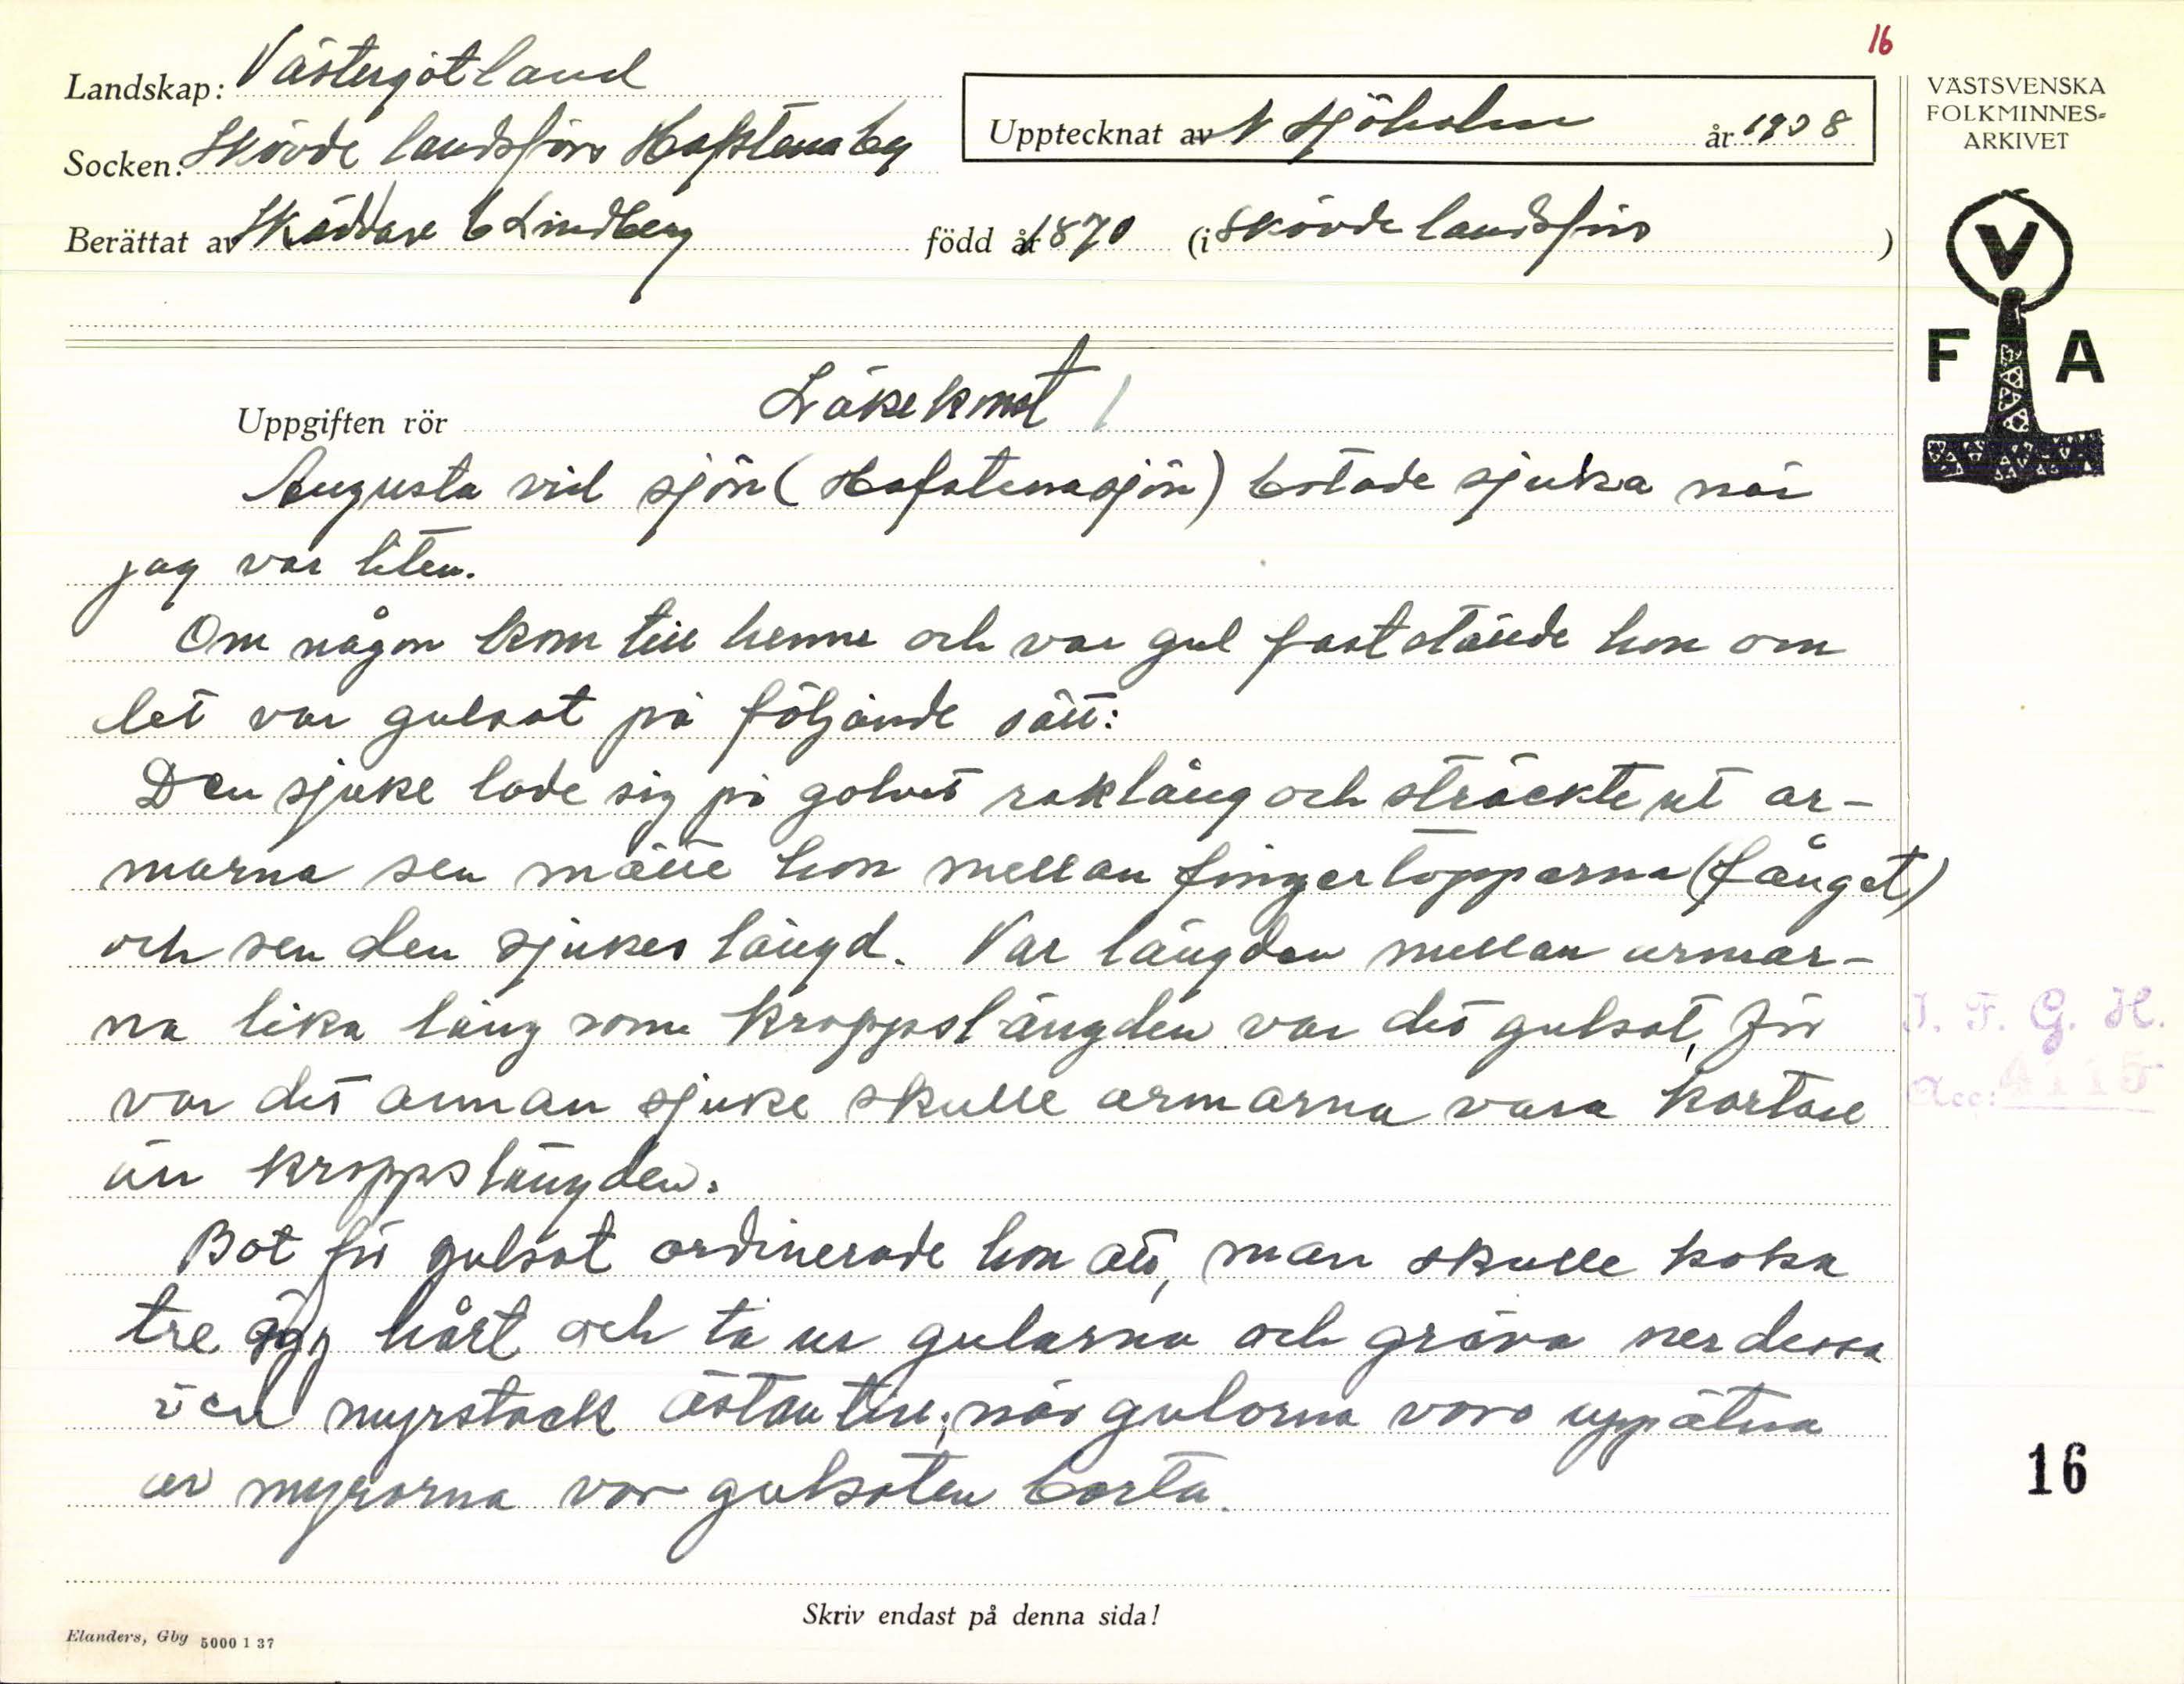 16
Landskap: Västergötland
Socken: Skövde landsförs Hafstena by
Upptecknat av N Sjöholm år 1938
VÄSTSVENSKA
FOLKMINNES-
ARKIVET
Berättat av Skäddare C Lindberg född år 1870 (i Skövde landsförs)
V
F A
Uppgiften rör Läkekonst
Augusta vid sjön (Hafstenasjön) botade sjuka när
jag var liten.
Om någon kom till henne och var gul fastställde hon om
det var gulsot på följande sätt:
Den sjuke lade sig på golvet raklång och sträckte ut ar-
marna sen mätte hon mellan fingertopparna (fånget)
och sen den sjukes längd. Var längden mellan armar-
na lika lång som kroppslängden var det gulsot, för
var det annan sjuke skulle armarna vara kortare
än kroppslängden.
Bot för gulsot ordinerade hon att, man skulle koka
tre ägg hårt och ta ur gulorna och gräva ner dessa
i en myrstack östan till; när gulorna voro uppätna
av myrorna var gulsoten borta.
I. F. G. H.
Acc: 4115
16
Skriv endast på denna sida!
Elanders, Gbg 5000 1 37